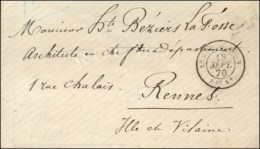 Monsieur Hte Béziers La Fosse
Architecte en chef du département
1 rue Chalais.
Rennes
Ille et Vilaine
SEPT.
70